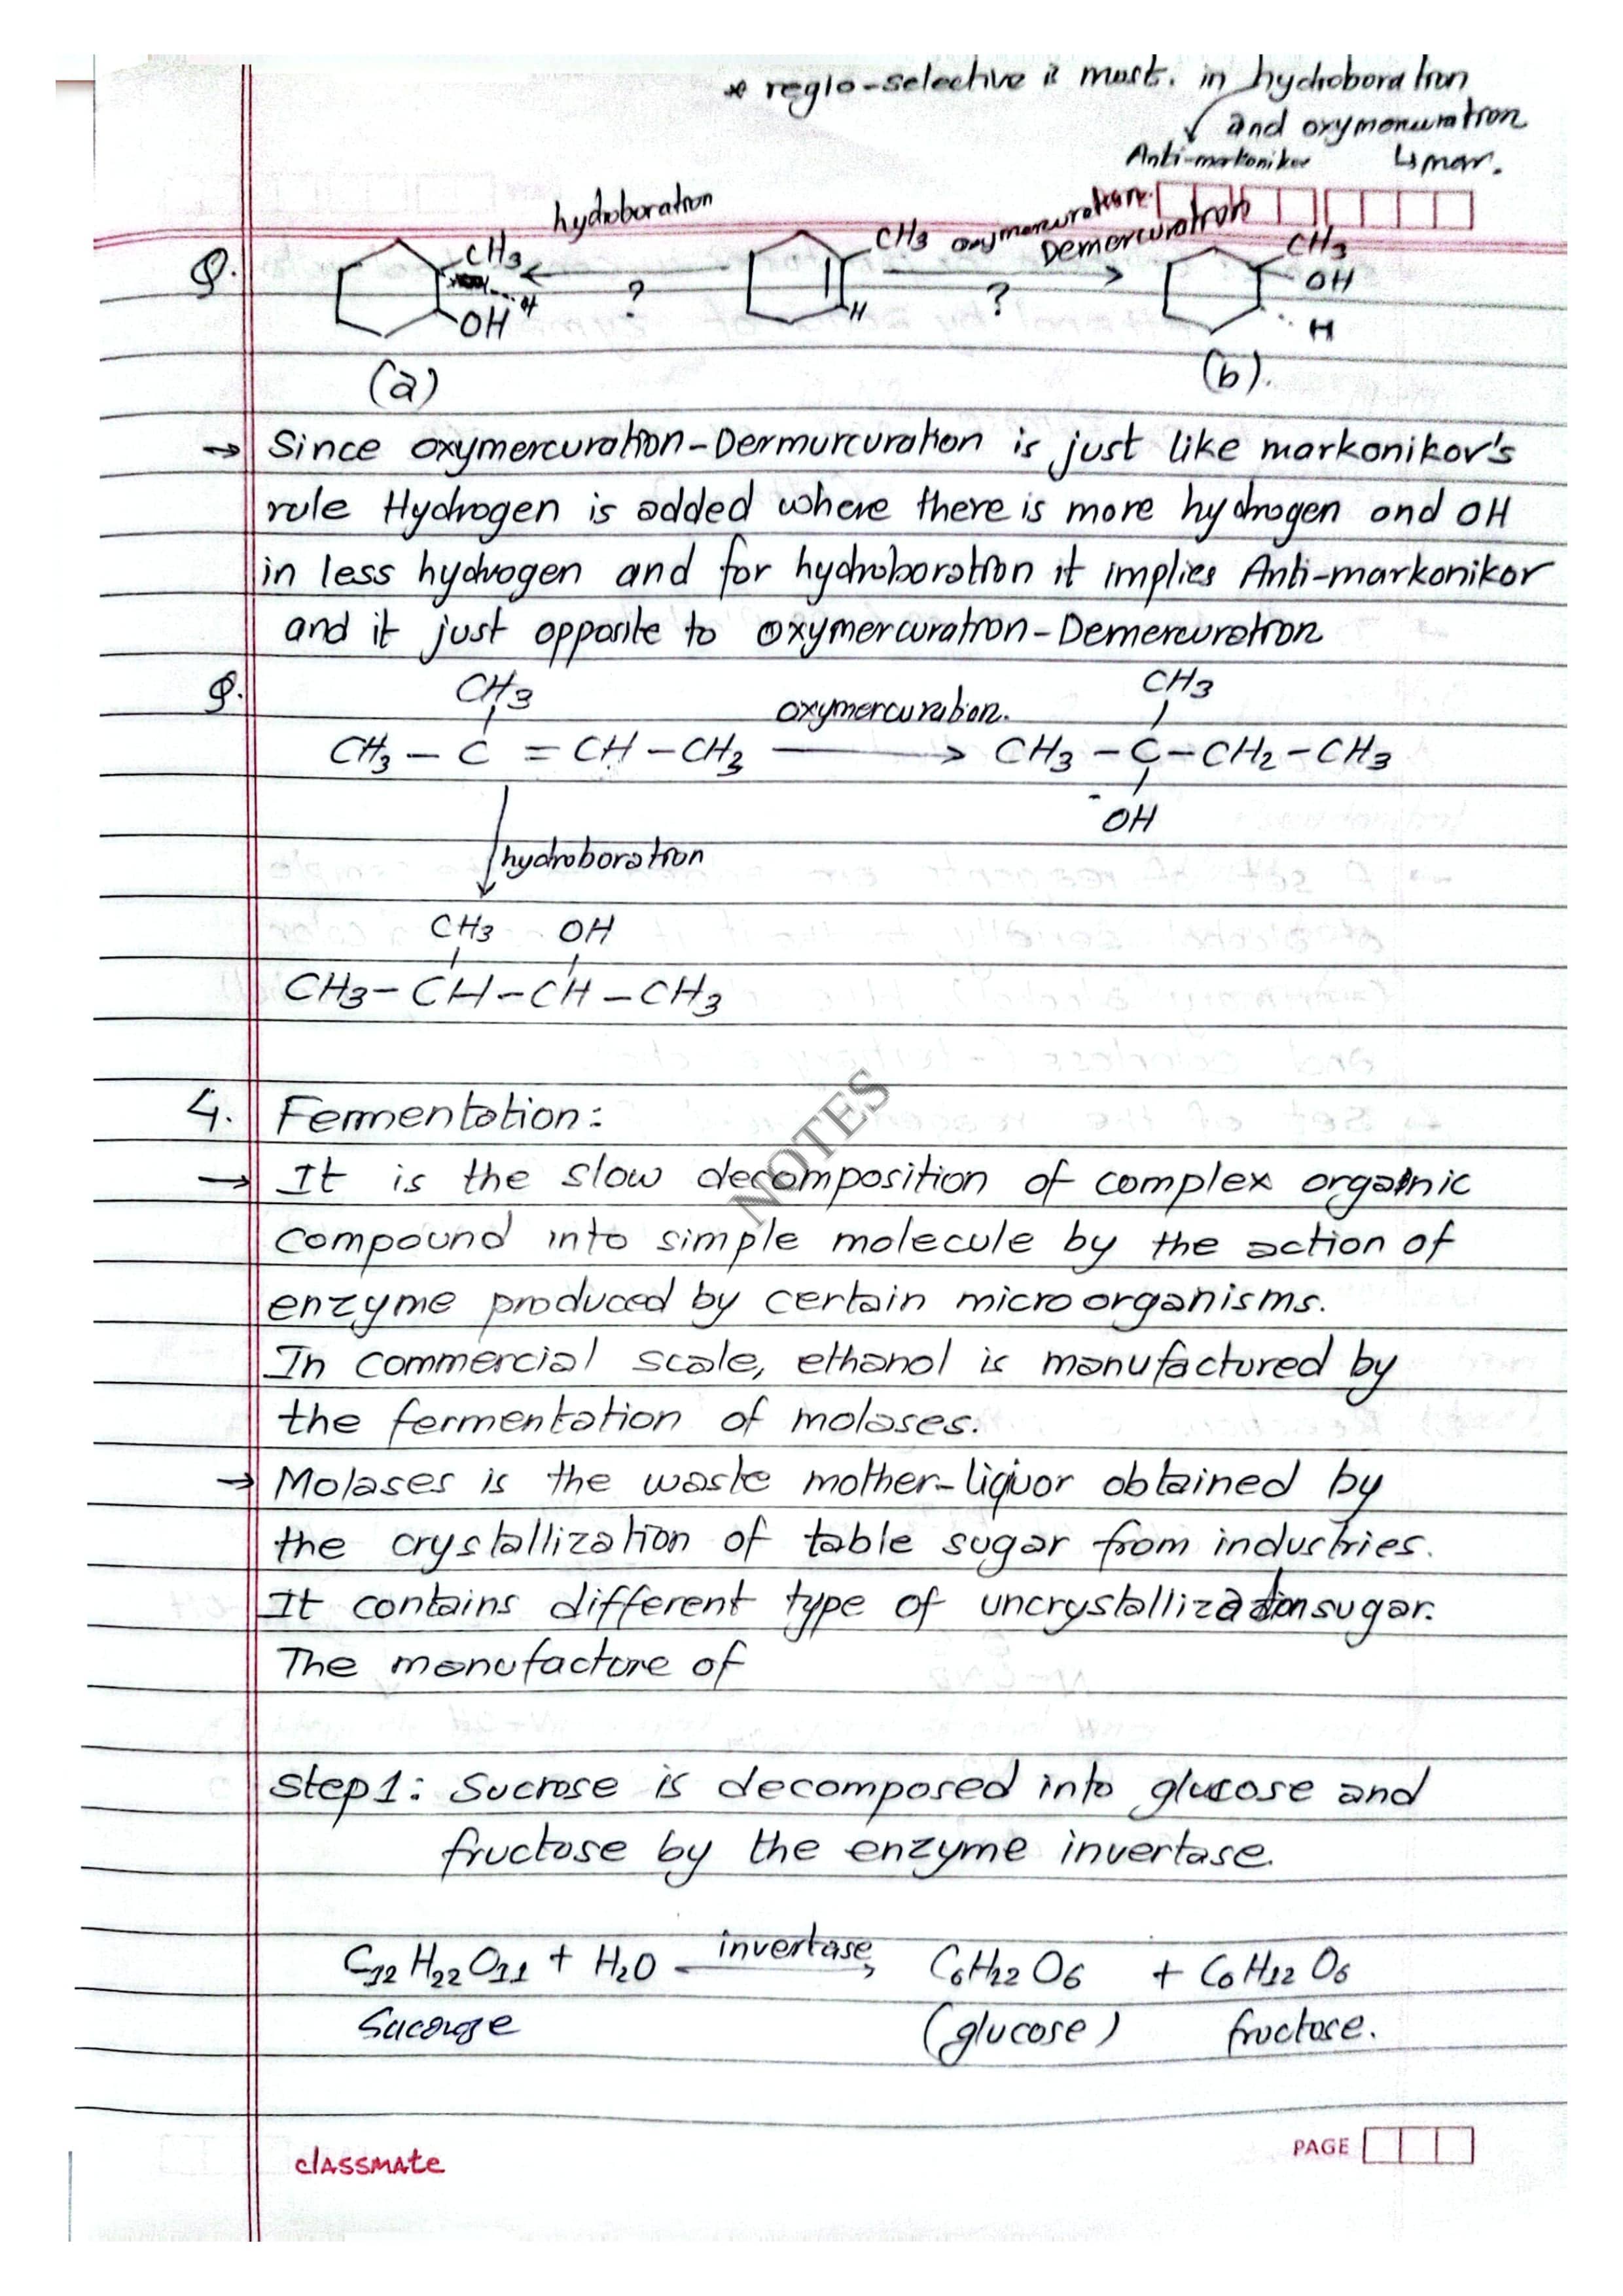 * regio-selective is must. in hydroboration
and oxymonuration
Anti-markoniker ↳ mar.
Q. CH3 OH hydroboration ? CH3 H oxymercuration. Demercuration ? CH3 OH H
(a) (b).
→ Since oxymercuration-Dermurcuration is just like markonikov's
rule Hydrogen is added where there is more hydrogen and OH
in less hydrogen and for hydroboration it implies Anti-markonikor
and it just opposite to oxymercuration-Demercuration
Q. CH3 CH3
CH3 - C = CH - CH3 oxymercuration. → CH3 - C - CH2 - CH3
OH
hydroboration
CH3 OH
CH3 - CH - CH - CH3
4. Fermentation:
→ It is the slow decomposition of complex organic
compound into simple molecule by the action of
enzyme produced by certain microorganisms.
In commercial scale, ethanol is manufactured by
the fermentation of molases.
→ Molases is the waste mother-liquor obtained by
the crystallization of table sugar from industries.
It contains different type of uncrystallization sugar.
The manufacture of
Step 1: Sucrose is decomposed into glucose and
fructose by the enzyme invertase.
C12 H22 O11 + H2O invertase → C6H12 O6 + C6 H12 O6
(glucose) fructose.
NOTES
classmate
PAGE